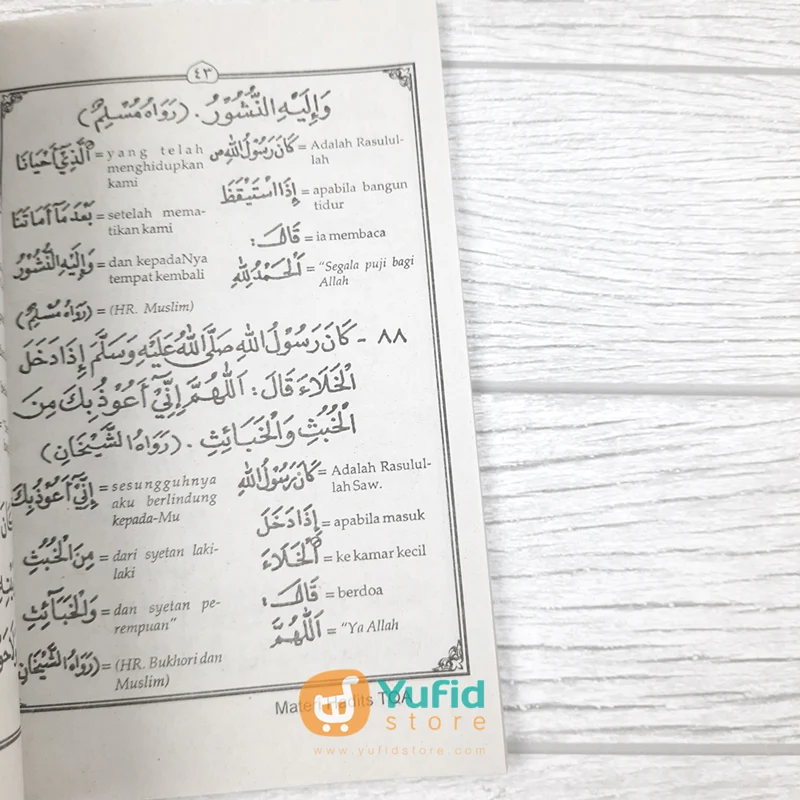 ٤٣
وَإِلَيْهِ النُّشُوْرُ. (رَوَاهُ مُسْلِمٌ)
كَانَ رَسُوْلُ اللهِ ص = Adalah Rasulul-
lah
إِذَا اسْتَيْقَظَ = apabila bangun
tidur
قَالَ: = ia membaca
اَلْحَمْدُ لِلهِ = "Segala puji bagi
Allah
الَّذِيْ أَحْيَانَا = yang telah
menghidupkan
kami
بَعْدَ مَا أَمَاتَنَا = setelah mema-
tikan kami
وَإِلَيْهِ النُّشُوْرُ = dan kepadaNya
tempat kembali
(رَوَاهُ مُسْلِمٌ) = (HR. Muslim)
٨٨ - كَانَ رَسُوْلُ اللهِ صَلَّى اللهُ عَلَيْهِ وَسَلَّمَ إِذَا دَخَلَ
الْخَلَاءَ قَالَ: اَللّٰهُمَّ إِنِّيْ أَعُوْذُ بِكَ مِنَ
الْخُبُثِ وَالْخَبَائِثِ. (رَوَاهُ الشَّيْخَانِ)
كَانَ رَسُوْلُ اللهِ = Adalah Rasulul-
lah Saw.
إِذَا دَخَلَ = apabila masuk
الْخَلَاءَ = ke kamar kecil
قَالَ: = berdoa
اَللّٰهُمَّ = "Ya Allah
إِنِّيْ أَعُوْذُ بِكَ = sesungguhnya
aku berlindung
kepada-Mu
مِنَ الْخُبُثِ = dari syetan laki-
laki
وَالْخَبَائِثِ = dan syetan pe-
rempuan"
(رَوَاهُ الشَّيْخَانِ) = (HR. Bukhori dan
Muslim)
Materi Hadits TQA
Yufid
store
www.yufidstore.com